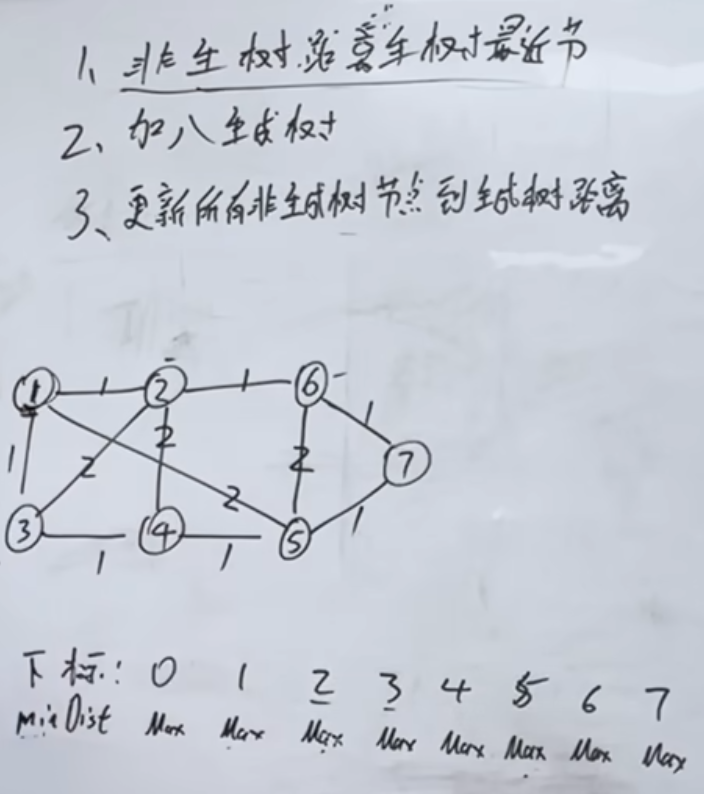 1、非生树距离生树最近节
2、加入生成树
3、更新所有非生成树节点到生成树距离
1 1 2 1 6
1 2 2 2 1 7
3 1 4 1 5 1
下标: 0 1 2 3 4 5 6 7
minDist Max Max Max Max Max Max Max Max